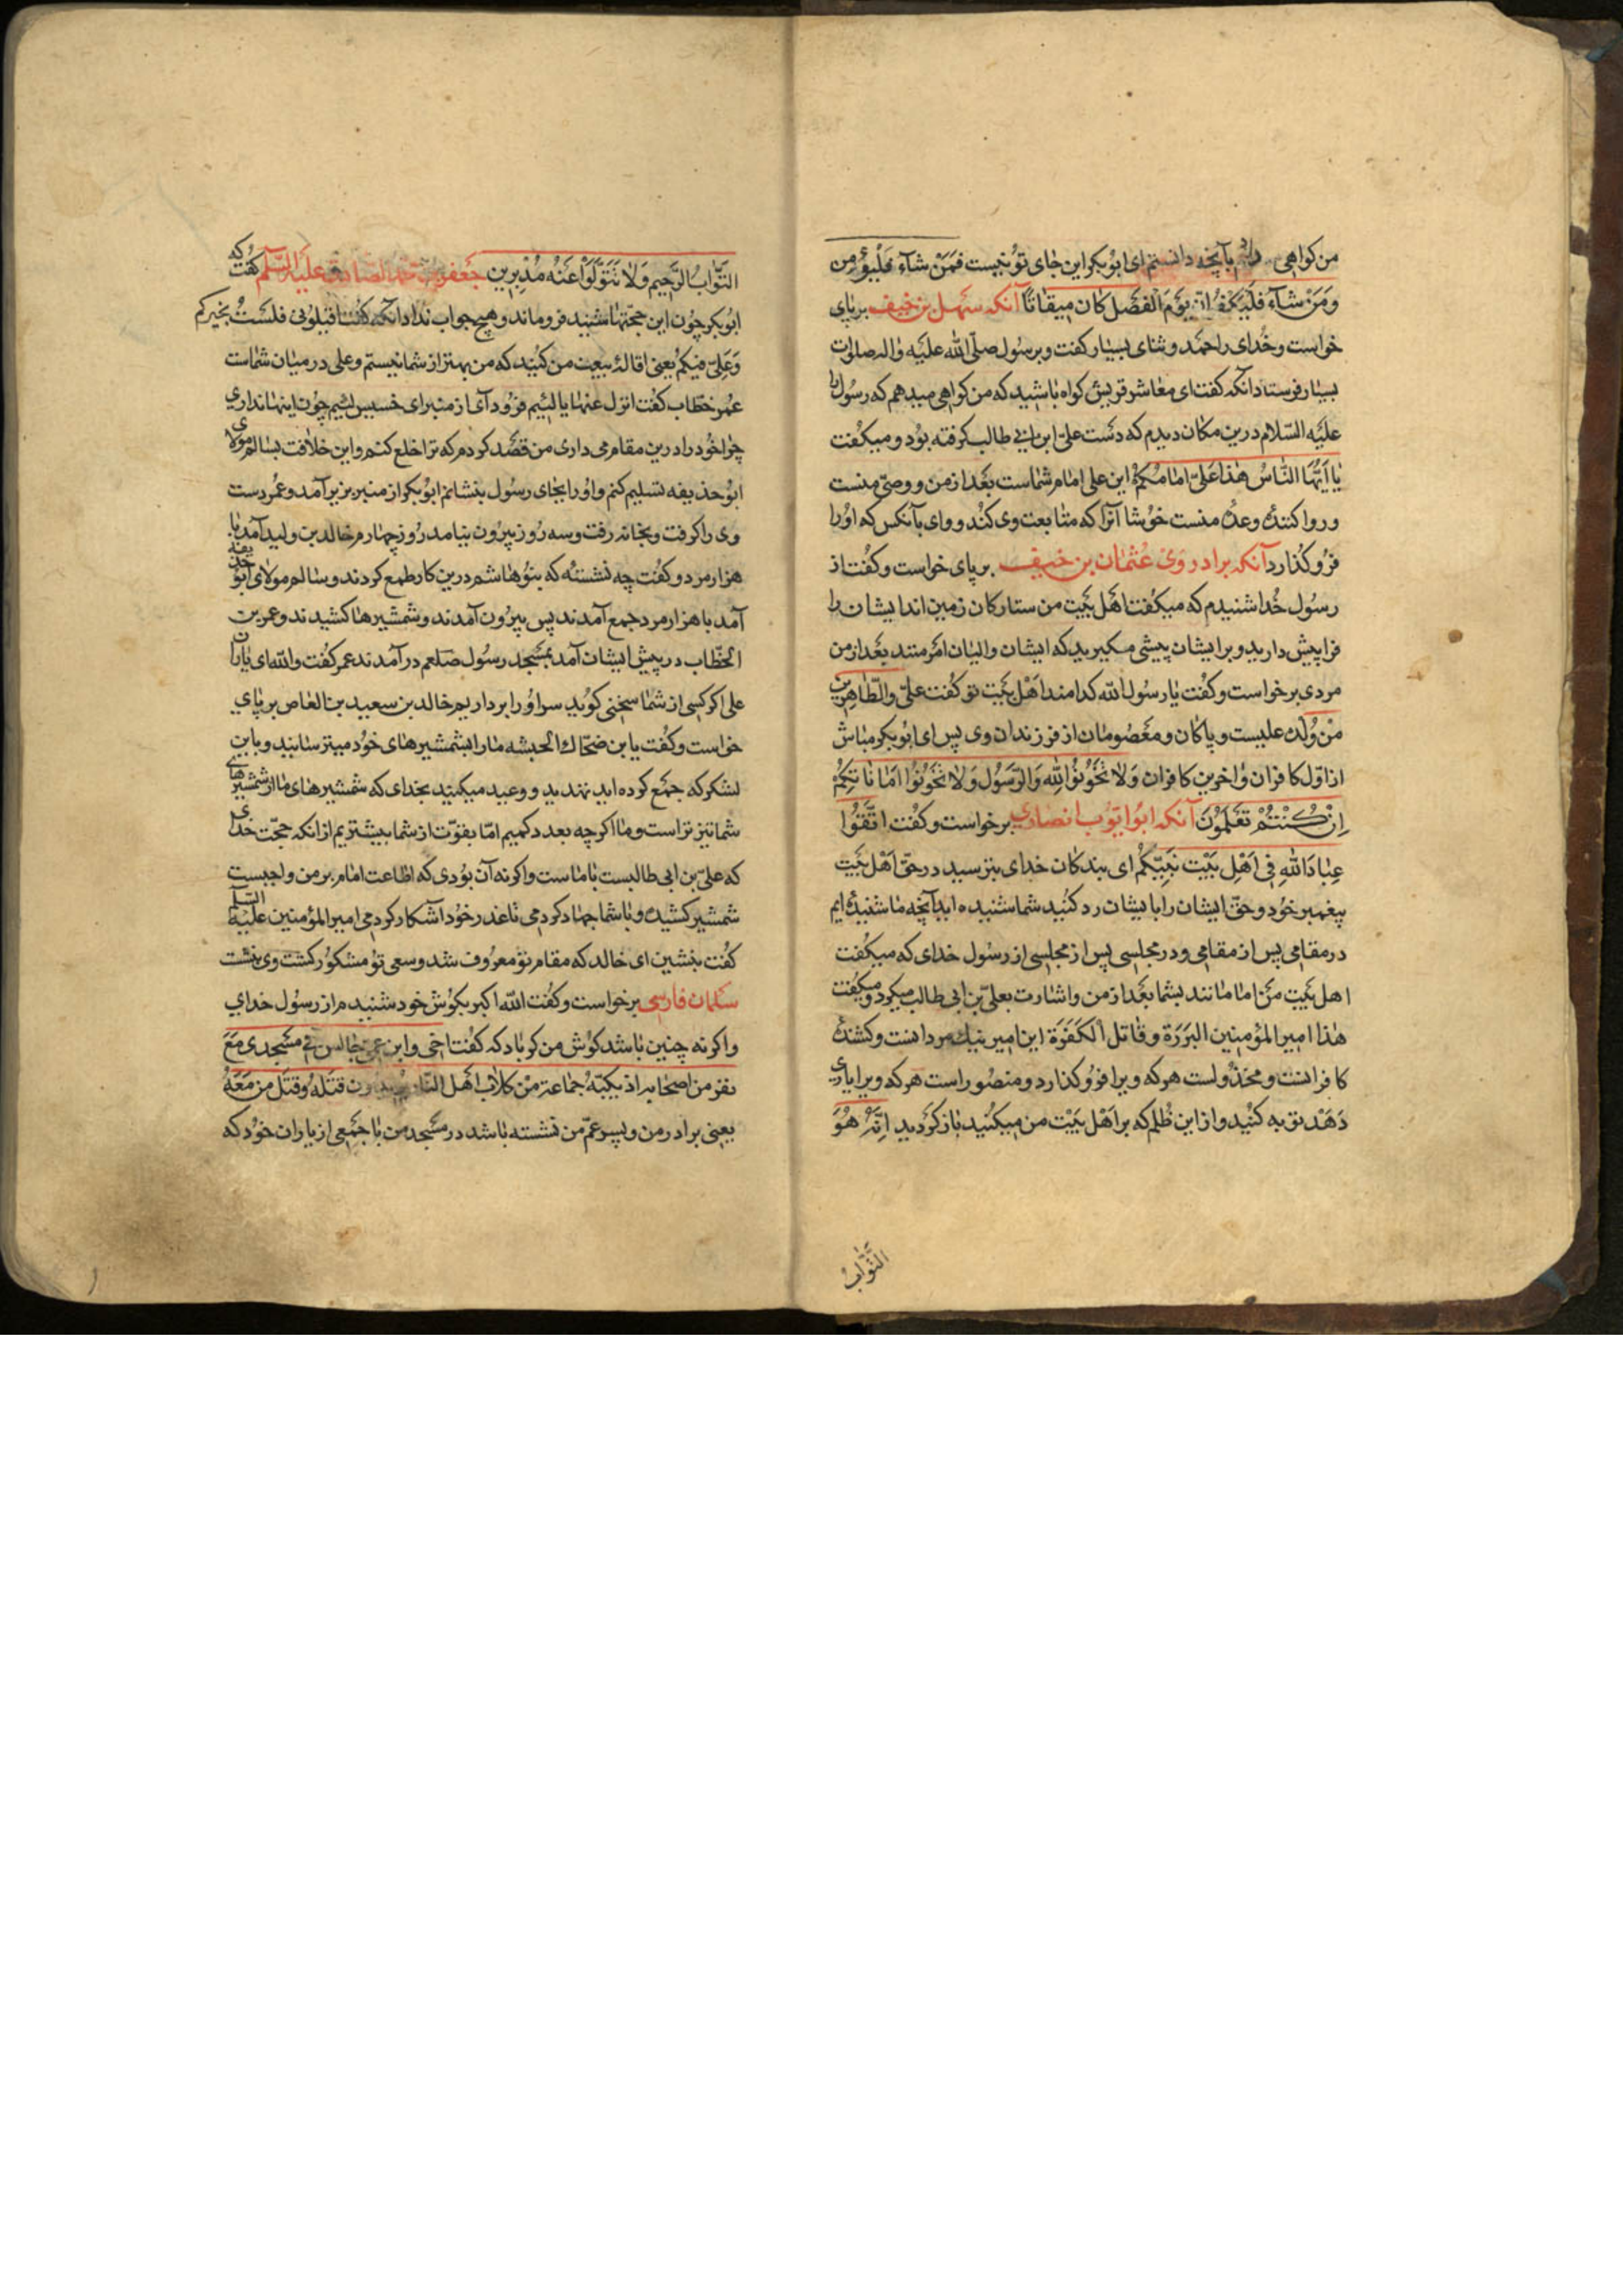 من کواهی دادم بآنچه دانستم ای ابوبکر این جای تو نیست فَمَنْ شآءَ فَلْیُؤْمِن
وَمَنْ شآءَ فَلْیَکْفُرْ اِنّ یَوْمَ الْفَصْل کانَ مِیقاتًا آنکه سهل بن خنیف برپای
خواست و خدای را حمد و ثنای بسیار کفت و بر رسول صلّی الله علیه واله صلوات
بسیار فرستاد آنکه کفت ای معاشر قریش کواه باشید که من کواهی میدهم که رسول را
علیه السّلام درین مکان دیدم که دست علیّ ابن ابی طالب کرفته بود و میکفت
یا اَیُّهَا النّاسُ هٰذا عَلیّ اِمامُکُمْ این علی امام شماست بعد از من و وصیّ منست
و روا کنندهٔ وعدهٔ منست خوشا آنرا که متابعت وی کند و وای بآنکس که اورا
فرو کذارد آنکه برادر وی عثمان بن خنیف برپای خواست و کفت از
رسول خدا شنیدم که میکفت اهل بَیْت من ستارکان زمین اند ایشان را
فرا پیش دارید و بر ایشان پیشی مکیرید که ایشان والیان امرمتند بعد از من
مردی برخواست و کفت یا رسول الله کدامند اَهْل بَیْت تو کفت علیّ والطّاهرین
مِنْ وُلْدِه علیست و پاکان و معصومان از فرزندان وی پس ای ابوبکر مباش
از اوّل کافران و اخرین کافران وَلا تَخُونُوا اللهِ وَالرَّسُول وَلا تَخُونُوا اَماناتِکُمْ
اِنْ کُنْتُمْ تَعْلَمُونَ آنکه ابو ایّوب انصاری برخواست و کفت اتَّقُوا
عِبادَ اللهِ فی اَهْلِ بَیْتِ نَبِیّکُمْ ای بندکان خدای بترسید در حقّ اَهْل بَیْت
پیغمبر خود و حقّ ایشان را بایشان رد کنید شما شنیده اید آنچه ما شنیده ایم
در مقامی پس از مقامی و در مجلسی پس از مجلسی از رسول خدای که میکفت
اهل بَیْت من اماما نند بشما بعد از من واشارت بعلیّ بن ابی طالب میکرد و میکفت
هٰذا امیر المؤمنین البَرَرَة وقاتل الکَفَرَة این امیر نیک مردانست و کشندهٔ
کافرانست و مخذولست هرکه ویرا فرو کذارد و منصور است هرکه ویرا یاری
دَهَد توبه کنید و از این ظلم که بر اَهْل بَیْت من میکنید باز کردید اِنَّهُ هُوَ
التَّوّابُ
التَّوّابُ الرَّحیم وَلا تَتَوَلَّوْا عَنْهُ مُدْبِرِین جعفر بن محمد الصادق علیه السّلم کفت که
ابوبکر چون این حجّتها شنید فرو ماند و هیچ جواب نداد آنکه کفت اقیلونی فلست بخیرکم
وَعَلیّ فیکم یعنی اقالهٔ بیعت من کنید که من بهتر از شما نیستم و علی در میان شماست
عمر خطّاب کفت انزل عنها یا لئیم فرود آی از منبر ای خسیس لئیم چون اینها نداری
چرا خود را درین مقام می داری من قصد کردم که ترا خلع کنم و این خلافت بسالم مولای
ابو حذیفه تسلیم کنم و اورا بجای رسول بنشانم ابوبکر از منبر بزیر آمد و عمر دست
وی را کرفت و بخانه رفت و سه روز بیرون نیامد روز چهارم خالد بن ولید آمد با
هزار مرد و کفت چه نشسته که بنو هاشم درین کار طمع کردند و سالم مولای ابو حذیفه
آمد با هزار مرد جمع آمدند پس بیرون آمدند و شمشیرها کشیدند و عمر بن
الخطّاب در پیش ایشان آمد بمسجد رسول صلعم در آمدند عمر کفت والله ای یاران
علی اکر کسی از شما سخنی کوید سر اورا برداریم خالد بن سعید بن العاص برپای
خواست و کفت یا بن ضحّاک الحبشه ما را بشمشیرهای خود میترسانید و باین
لشکر که جمع کرده اید تهدید و وعید میکنید بخدای که شمشیرهای ما از شمشیرهای
شما تیز تر است و ما اکرچه بعدد کمیم امّا بقوّت از شما بیشتریم از انکه حجّت خدای
که علیّ بن ابی طالبست با ماست واکرنه آن بودی که اطاعت امام بر من واجبست
شمشیر کشیده و با شما جهاد کردمی تا عذر خود آشکار کردمی امیر المؤمنین علیه السّلم
کفت بنشین ای خالد که مقام تو معروف شد و سعی تو مشکور کشت وی بنشست
سلمان فارسی برخواست و کفت الله اکبر بکوش خود شنیدم از رسول خدای
واکرنه چنین باشد کوش من کر باد که کفت اخی وابن عمی جالس فی مسجدی مَعَ
نفر من اصحابه اذ یکبّه جماعة مِنْ کلاب اهل النّار یریدون قتله وقتل من مَعَهُ
یعنی برادر من و پسر عمّ من نشسته باشد در مسجد من با جمعی از یاران خود که